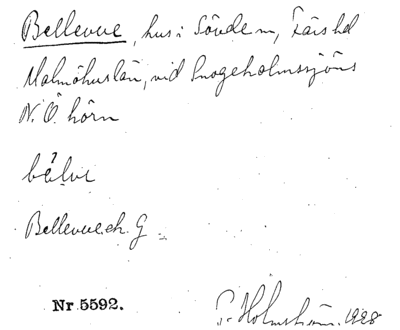 Bellevue, hus i Sövde sn, Färs hd
Malmöhus län, vid Snogeholmssjöns
N.Ö. hörn
bälve
Bellevue ek. G
Nr 5592.
Holmström, 1928